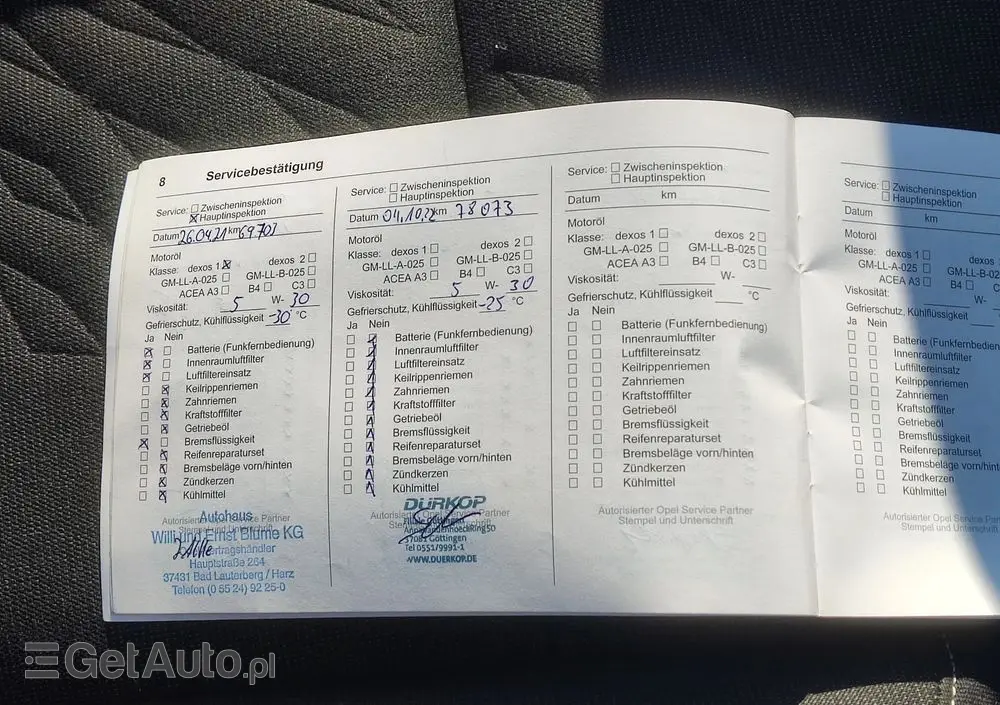 8 Servicebestätigung
Service: Zwischeninspektion
Hauptinspektion
Datum 26.04.21 km 69.703
Motoröl
Klasse: dexos 1 dexos 2
GM-LL-A-025 GM-LL-B-025
ACEA A3 B4 C3
Viskosität: 5 W- 30
Gefrierschutz, Kühlflüssigkeit -30 °C
Ja Nein
Batterie (Funkfernbedienung)
Innenraumluftfilter
Luftfiltereinsatz
Keilrippenriemen
Zahnriemen
Kraftstofffilter
Getriebeöl
Bremsflüssigkeit
Reifenreparaturset
Bremsbeläge vorn/hinten
Zündkerzen
Kühlmittel
Autorisierter Opel Service Partner
Stempel und Unterschrift
Autohaus
Willi und Ernst Blume KG
Vertragshändler
Hauptstraße 264
37431 Bad Lauterberg / Harz
Telefon (0 55 24) 92 25-0
Service: Zwischeninspektion
Hauptinspektion
Datum 04.10.22 km 78073
Motoröl
Klasse: dexos 1 dexos 2
GM-LL-A-025 GM-LL-B-025
ACEA A3 B4 C3
Viskosität: 5 W- 30
Gefrierschutz, Kühlflüssigkeit -25 °C
Ja Nein
Batterie (Funkfernbedienung)
Innenraumluftfilter
Luftfiltereinsatz
Keilrippenriemen
Zahnriemen
Kraftstofffilter
Getriebeöl
Bremsflüssigkeit
Reifenreparaturset
Bremsbeläge vorn/hinten
Zündkerzen
Kühlmittel
Autorisierter Opel Service Partner
DÜRKOP
Filiale Göttingen
37081 Göttingen
Tel 0551/9991-1
WWW.DUERKOP.DE
Service: Zwischeninspektion
Hauptinspektion
Datum km
Motoröl
Klasse: dexos 1 dexos 2
GM-LL-A-025 GM-LL-B-025
ACEA A3 B4 C3
Viskosität: W-
Gefrierschutz, Kühlflüssigkeit °C
Ja Nein
Batterie (Funkfernbedienung)
Innenraumluftfilter
Luftfiltereinsatz
Keilrippenriemen
Zahnriemen
Kraftstofffilter
Getriebeöl
Bremsflüssigkeit
Reifenreparaturset
Bremsbeläge vorn/hinten
Zündkerzen
Kühlmittel
Autorisierter Opel Service Partner
Stempel und Unterschrift
Service: Zwischeninspektion
Hauptinspektion
Datum km
Motoröl
Klasse: dexos 1
GM-LL-A-025 GM-LL-B-02
ACEA A3 B4 C3
Viskosität: W-
Gefrierschutz, Kühlflüssigkeit
Ja Nein
Batterie (Funkfernbedienun
Innenraumluftfilter
Luftfiltereinsatz
Keilrippenriemen
Zahnriemen
Kraftstofffilter
Getriebeöl
Bremsflüssigkeit
Reifenreparaturset
Bremsbeläge vorn/hint
Zündkerzen
Kühlmittel
Autorisierter Opel Service Partner
Stempel und Unterschrift
GetAuto.pl